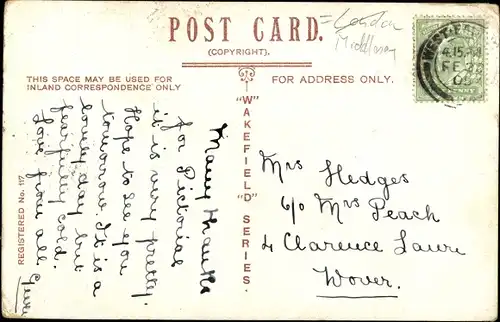 POST CARD.
(COPYRIGHT).
= London
THIS SPACE MAY BE USED FOR
INLAND CORRESPONDENCE ONLY
FOR ADDRESS ONLY.
Many thanks
for Pictorial
it is very pretty.
Hope to see you
tomorrow. It is a
lovely day but
fearfully cold.
Love from all.
"WAKEFIELD "D" SERIES.
REGISTERED No. 117
Mrs Hedges
c/o Mrs Peach
4 Clarence Lawn
Dover.
4.15
FE
05